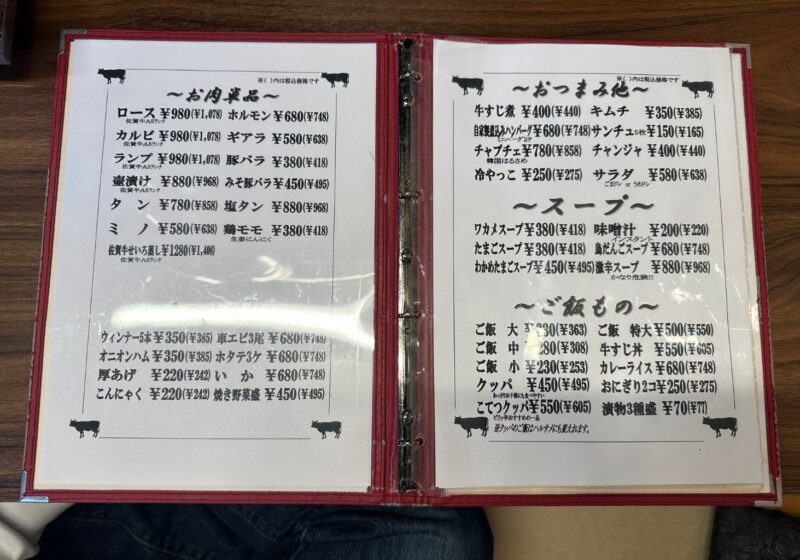 ※( )内は税込価格です
～お肉単品～
ロース ¥980(¥1,078) ホルモン ¥680(¥748)
佐賀牛A5ランク
カルビ ¥980(¥1,078) ギアラ ¥580(¥638)
佐賀牛A5ランク
ランプ ¥980(¥1,078) 豚バラ ¥380(¥418)
佐賀牛A5ランク
壷漬け ¥880(¥968) みそ豚バラ ¥450(¥495)
佐賀牛A5ランク
タン ¥780(¥858) 塩タン ¥880(¥968)
ミノ ¥580(¥638) 鶏モモ ¥380(¥418)
生姜にんにく
佐賀牛せいろ蒸し ¥1280(¥1,408)
佐賀牛A5ランク
ウィンナー5本 ¥350(¥385) 車エビ3尾 ¥680(¥748)
オニオンハム ¥350(¥385) ホタテ3ケ ¥680(¥748)
厚あげ ¥220(¥242) いか ¥680(¥748)
こんにゃく ¥220(¥242) 焼き野菜盛 ¥450(¥495)
※( )内は税込価格です
～おつまみ他～
牛すじ煮 ¥400(¥440) キムチ ¥350(¥385)
自家製煮込みハンバーグ ¥680(¥748) サンチュ5枚 ¥150(¥165)
ミニハーグ2ケ
チャプチェ ¥780(¥858) チャンジャ ¥400(¥440)
韓国はるさめ
冷やっこ ¥250(¥275) サラダ ¥580(¥638)
ごまドレ or うめドレ
～スープ～
ワカメスープ ¥380(¥418) 味噌汁 ¥200(¥220)
インスタント
たまごスープ ¥380(¥418) 鳥だんごスープ ¥680(¥748)
わかめたまごスープ ¥450(¥495) 激辛スープ ¥880(¥968)
かなり危険!!
～ご飯もの～
ご飯 大 ¥330(¥363) ご飯 特大 ¥500(¥550)
ご飯 中 ¥280(¥308) 牛すじ丼 ¥550(¥605)
ご飯 小 ¥230(¥253) カレーライス ¥680(¥748)
クッパ ¥450(¥495) おにぎり2コ ¥250(¥275)
あっさりお子様にも食べやすい
こてつクッパ ¥550(¥605) 漬物3種盛 ¥70(¥77)
ピリッ辛おすすめの一品
※クッパのご飯はハルサメにも変えれます。